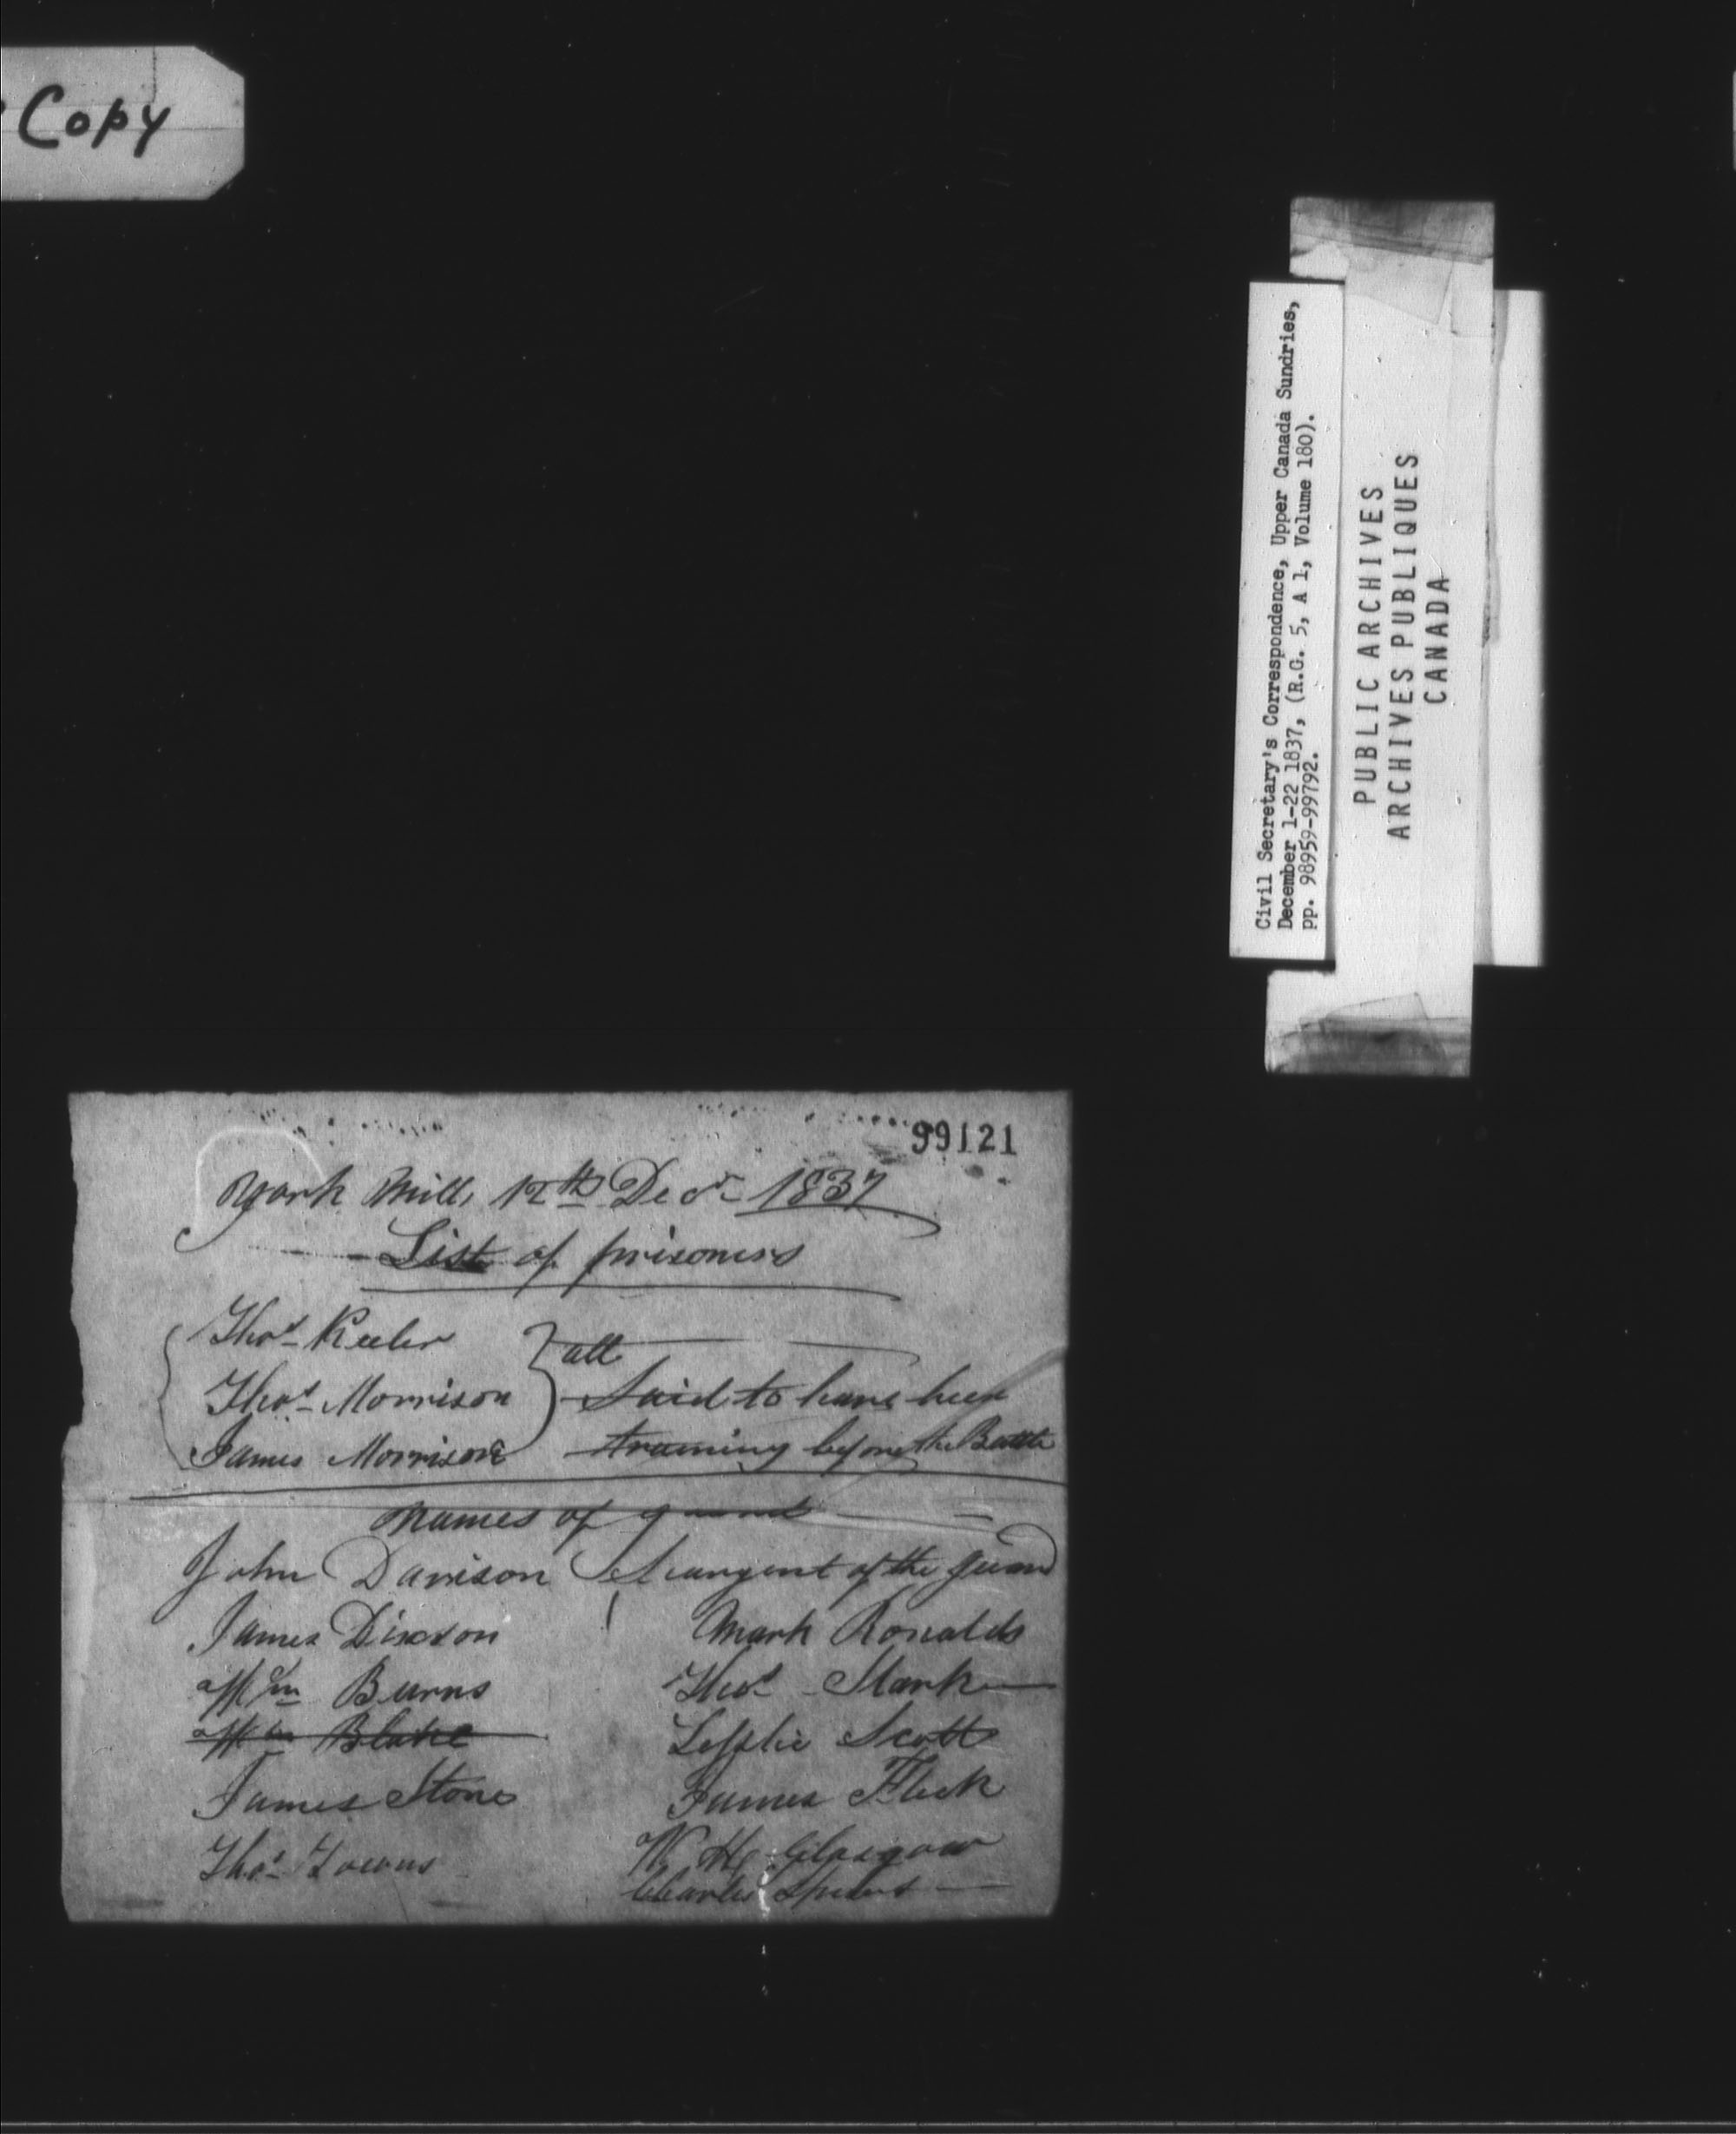 Copy
Civil Secretary's Correspondence, Upper Canada Sundries,
December 1-22 1837, (R.G. 5, A 1, Volume 180).
pp. 98959-99792.
PUBLIC ARCHIVES
ARCHIVES PUBLIQUES
CANADA
99121
York Mills 12th Decr 1837
List of prisoners
Thos Keeler
Thos Morrison
James Morrison
all
Said to have been
training before the Battle
Names of guard
John Davison Seargent of the guard
James Dixson Mark Ronalds
Wm Burns Thos Stark
Wm Blake Lesslie Scott
James Stone James Fleck
Thos W. H. Glasgow
Charles Spears